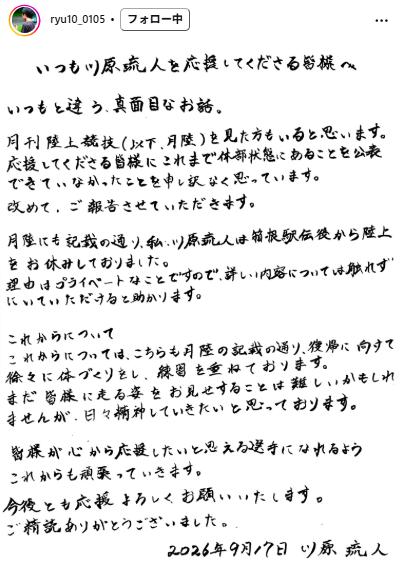 ryu10_0105 • フォロー中 …
いつも川原流人を応援してくださる皆様へ
いつもと違う、真面目なお話。
月刊陸上競技(以下、月陸)を見た方もいると思います。
応援してくださる皆様にこれまで休部状態にあることを公表
できていなかったことを申し訳なく思っています。
改めて、ご報告させていただきます。
月陸にも記載の通り、私、川原流人は箱根駅伝後から陸上
をお休みしておりました。
理由はプライベートなことですので、詳しい内容については触れず
にいていただけると助かります。
これからについて
これからについては、こちらも月陸の記載の通り、復帰に向けて
徐々に体づくりをし、練習を重ねております。
まだ皆様に走る姿をお見せすることは難しいかもしれ
ませんが、日々精神していきたいと思っております。
皆様が心から応援したいと思える選手になれるよう
これからも頑張っていきます。
今後とも応援よろしくお願いいたします。
ご精読ありがとうございました。
2026年9月17日 川原 流人